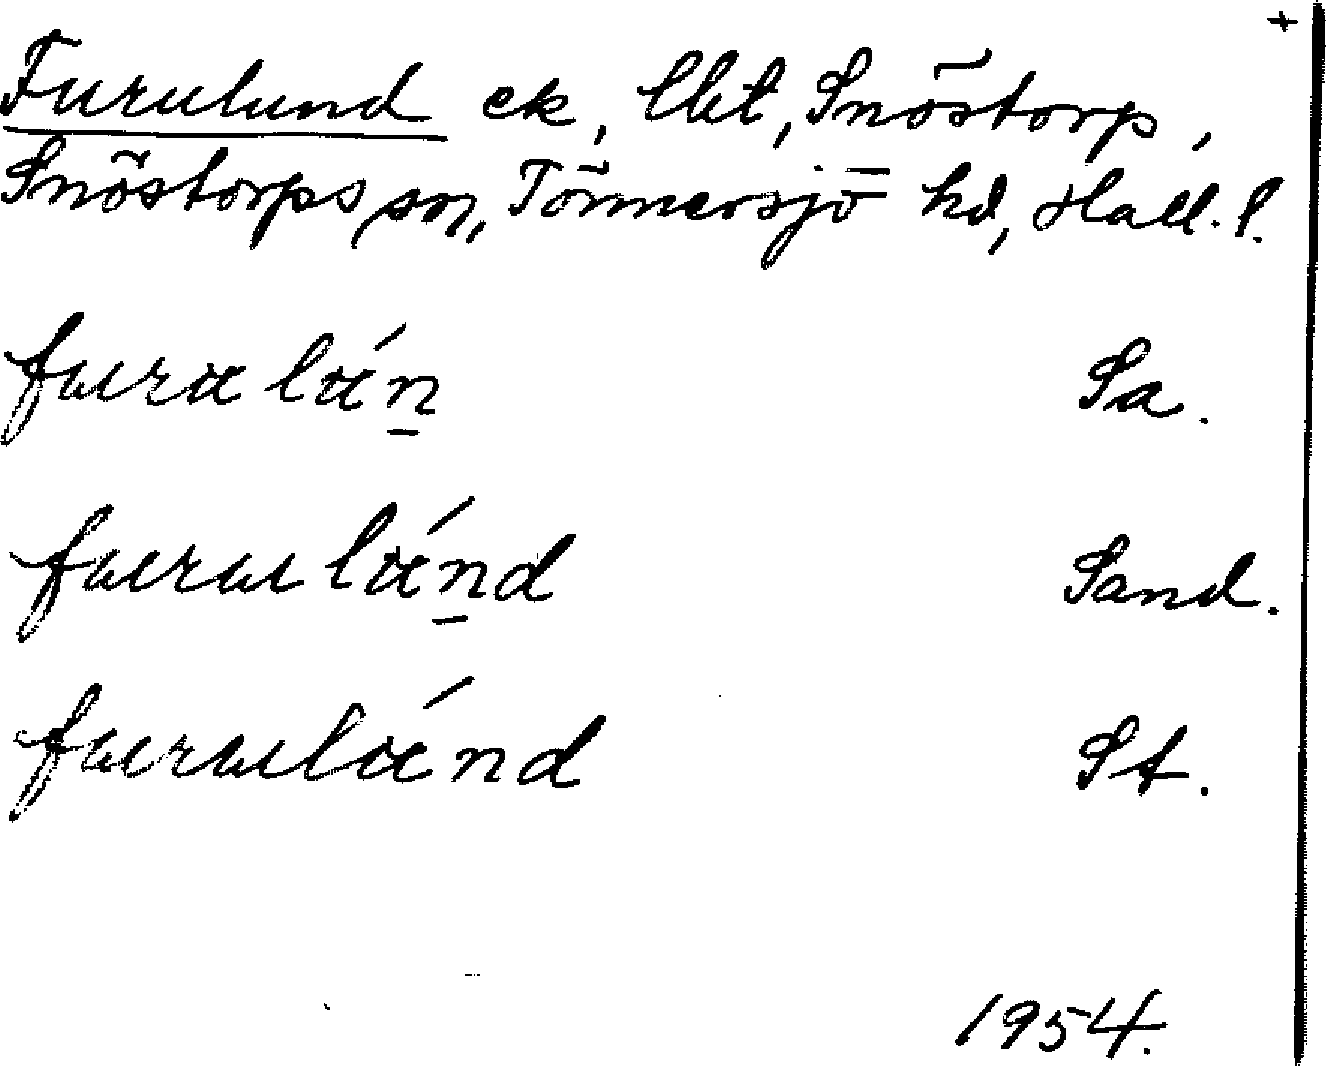 +
Furulund ek, lht, Snöstorp,
Snöstorps sn, Tönnersjö hd, Hall. l.
furulún Sa.
furulúnd Sand.
furulúnd St.
1954.